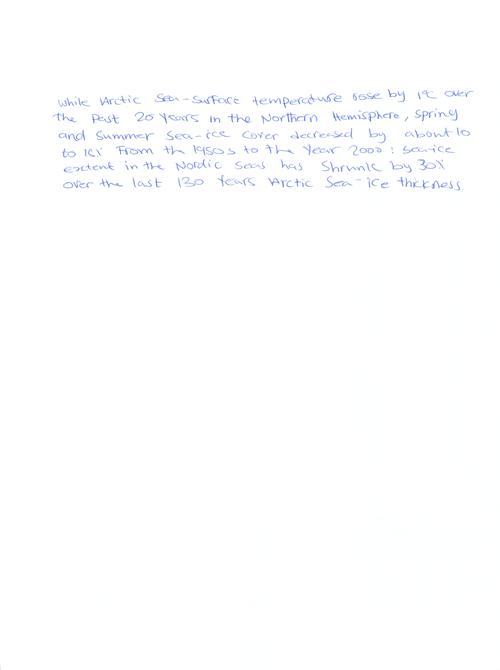 while Arctic Sea-Surface temperature rose by 1°C over
the Past 20 Years in the Northern Hemisphere, spring
and Summer Sea-ice Cover decreased by about 10
to 15% From the 1950s to the Year 2000 : sea-ice
extent in the Nordic Seas has Shrunk by 30%
over the last 130 Years Arctic Sea-ice thickness